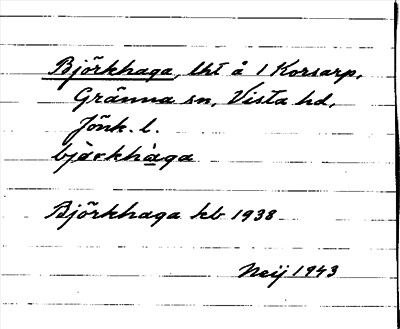 Björkhaga, lht å 1 Korsarp,
Gränna sn, Vista hd,
Jönk. l.
bjàrkhàga
Björkhaga kb 1938
Neij 1943